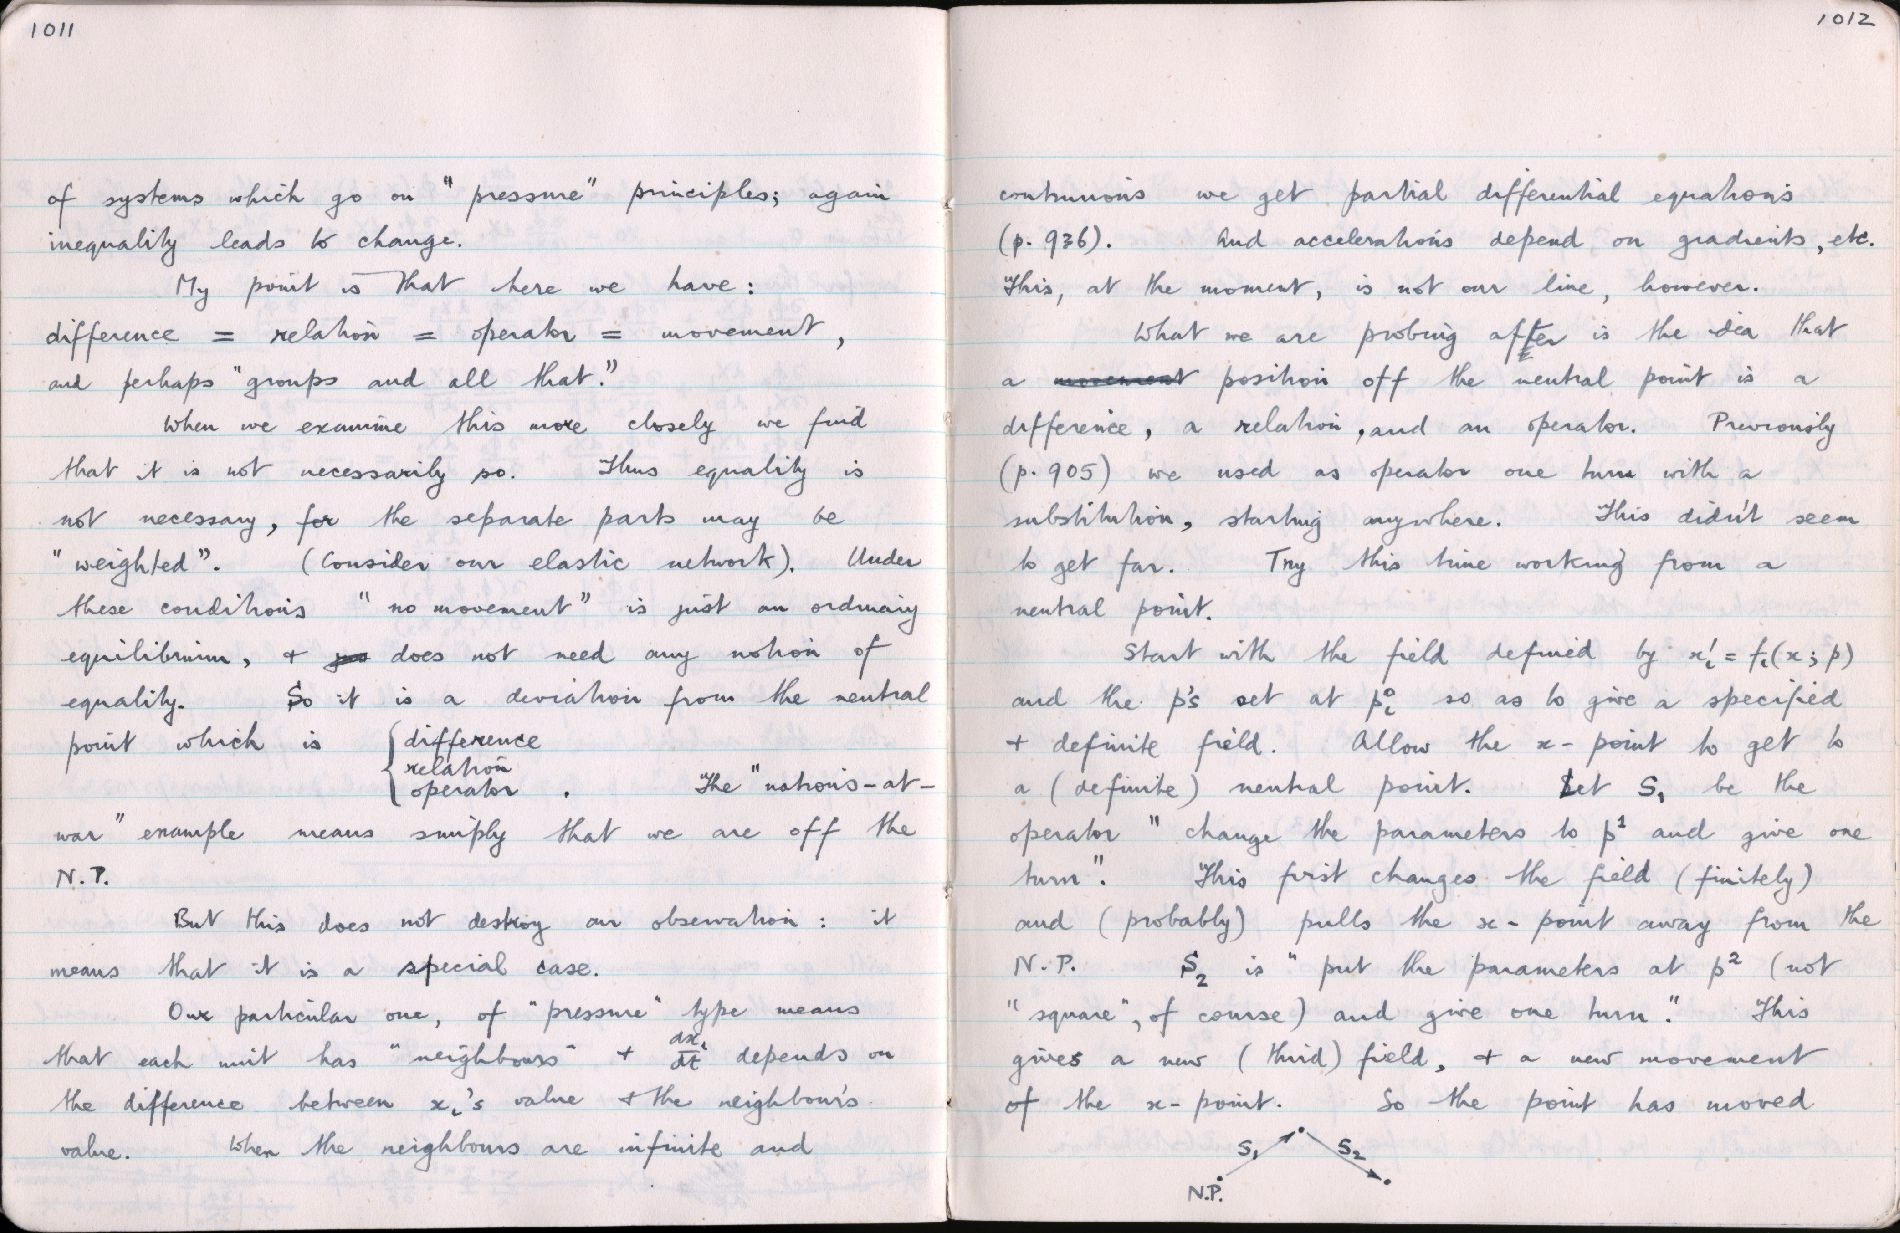 1011
of systems which go on "pressure" principles; again
inequality leads to change.
My point is that here we have:
difference = relation = operator = movement,
and perhaps "groups and all that."
When we examine this more closely we find
that it is not necessarily so. Thus equality is
not necessary, for the separate parts may be
"weighted". (Consider our elastic network). Under
these conditions "no movement" is just an ordinary
equilibrium, + does not need any notion of
equality. So it is a deviation from the neutral
point which is { difference
relation
operator . The "nations-at-
war" example means simply that we are off the
N.P.
But this does not destroy our observation: it
means that it is a special case.
Our particular one, of "pressure" type means
that each unit has "neighbours" + dxi/dt depends on
the difference between xi's value + the neighbour's
value. When the neighbours are infinite and
1012
continuous we get partial differential equations
(p. 936). And accelerations depend on gradients, etc.
This, at the moment, is not our line, however.
What we are probing after is the idea that
a movement position off the neutral point is a
difference, a relation, and an operator. Previously
(p. 905) we used as operator one turn with a
substitution, starting anywhere. This didn't seem
to get far. Try this time working from a
neutral point.
Start with the field defined by x'i = fi(x; p)
and the p's set at p°i so as to give a specified
+ definite field. Allow the x-point to get to
a (definite) neutral point. Let S₁ be the
operator "change the parameters to p¹ and give one
turn". This first changes the field (finitely)
and (probably) pulls the x-point away from the
N.P. S₂ is "put the parameters at p² (not
"square", of course) and give one turn." This
gives a new (third) field, + a new movement
of the x-point. So the point has moved
S₁ S₂
N.P.